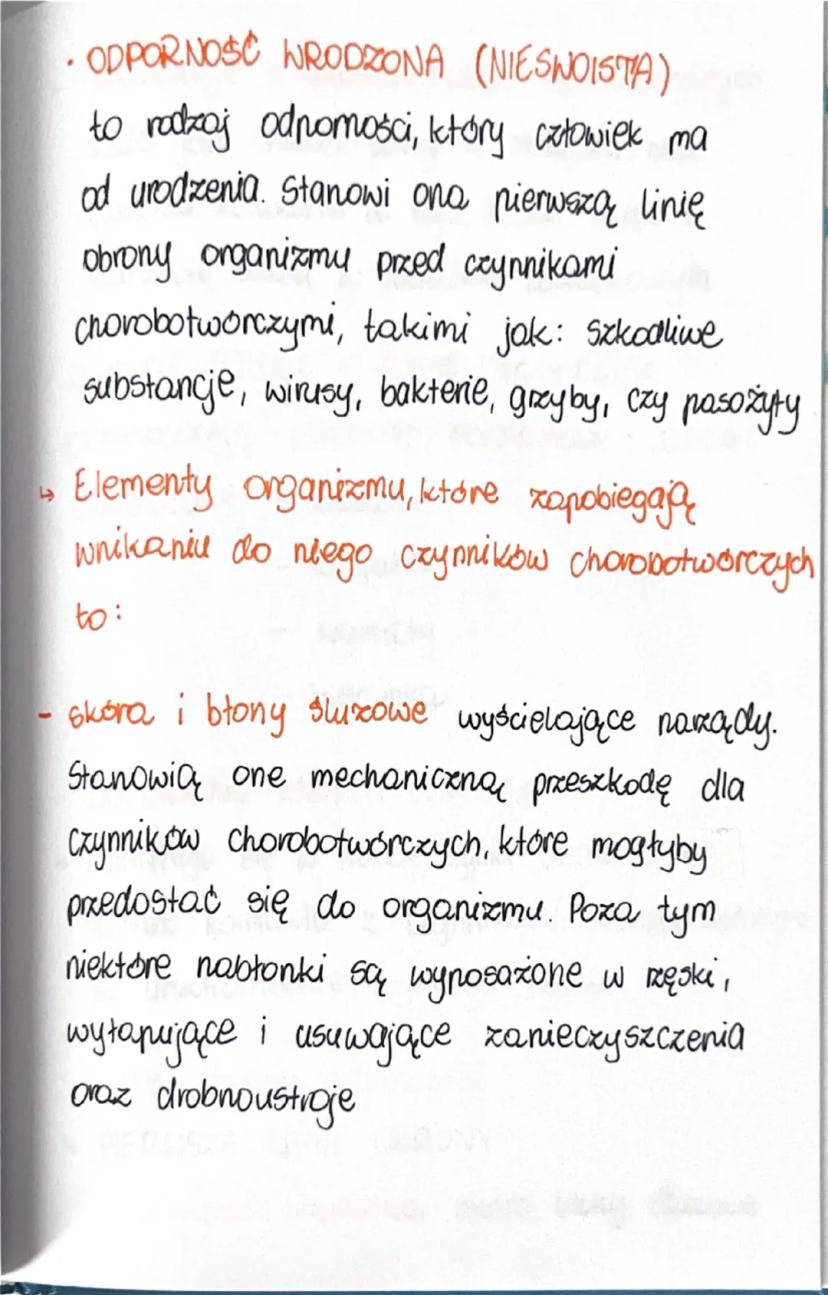 · ODPORNOŚĆ WRODZONA (NIESWOISTA)
to rodzaj odporności, który człowiek ma
od urodzenia. Stanowi ona pierwszą linię
obrony organizmu przed czynnikami
chorobotwórczymi, takimi jak: szkodliwe
substancje, wirusy, bakterie, grzyby, czy pasożyty
↳ Elementy organizmu, które zapobiegają
wnikaniu do niego czynników chorobotwórczych
to:
- skóra i błony śluzowe wyścielające narządy.
Stanowią one mechaniczną przeszkodę dla
czynników chorobotwórczych, które mogłyby
przedostać się do organizmu. Poza tym
niektóre nabłonki są wyposażone w rzęski,
wyłapujące i usuwające zanieczyszczenia
oraz drobnoustroje